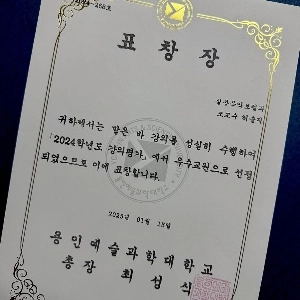 표창장
귀하께서는 맡은 바 강의를 성실히 수행하여
「2024학년도 강의평가」에서 우수교원으로 선정
되었으므로 이에 표창합니다.
2025년 01월 16일
용인예술과학대학교
총장 최성식